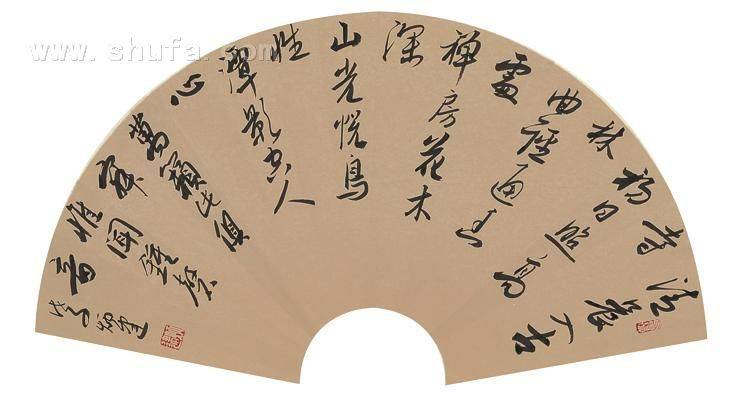 www.shufa.com
清晨入古
寺
初日照高
林
曲径通幽
處
禅房花木
深
山光悦鳥
性
潭影空人
心
萬籟此俱
寂
惟聞鐘磬
音